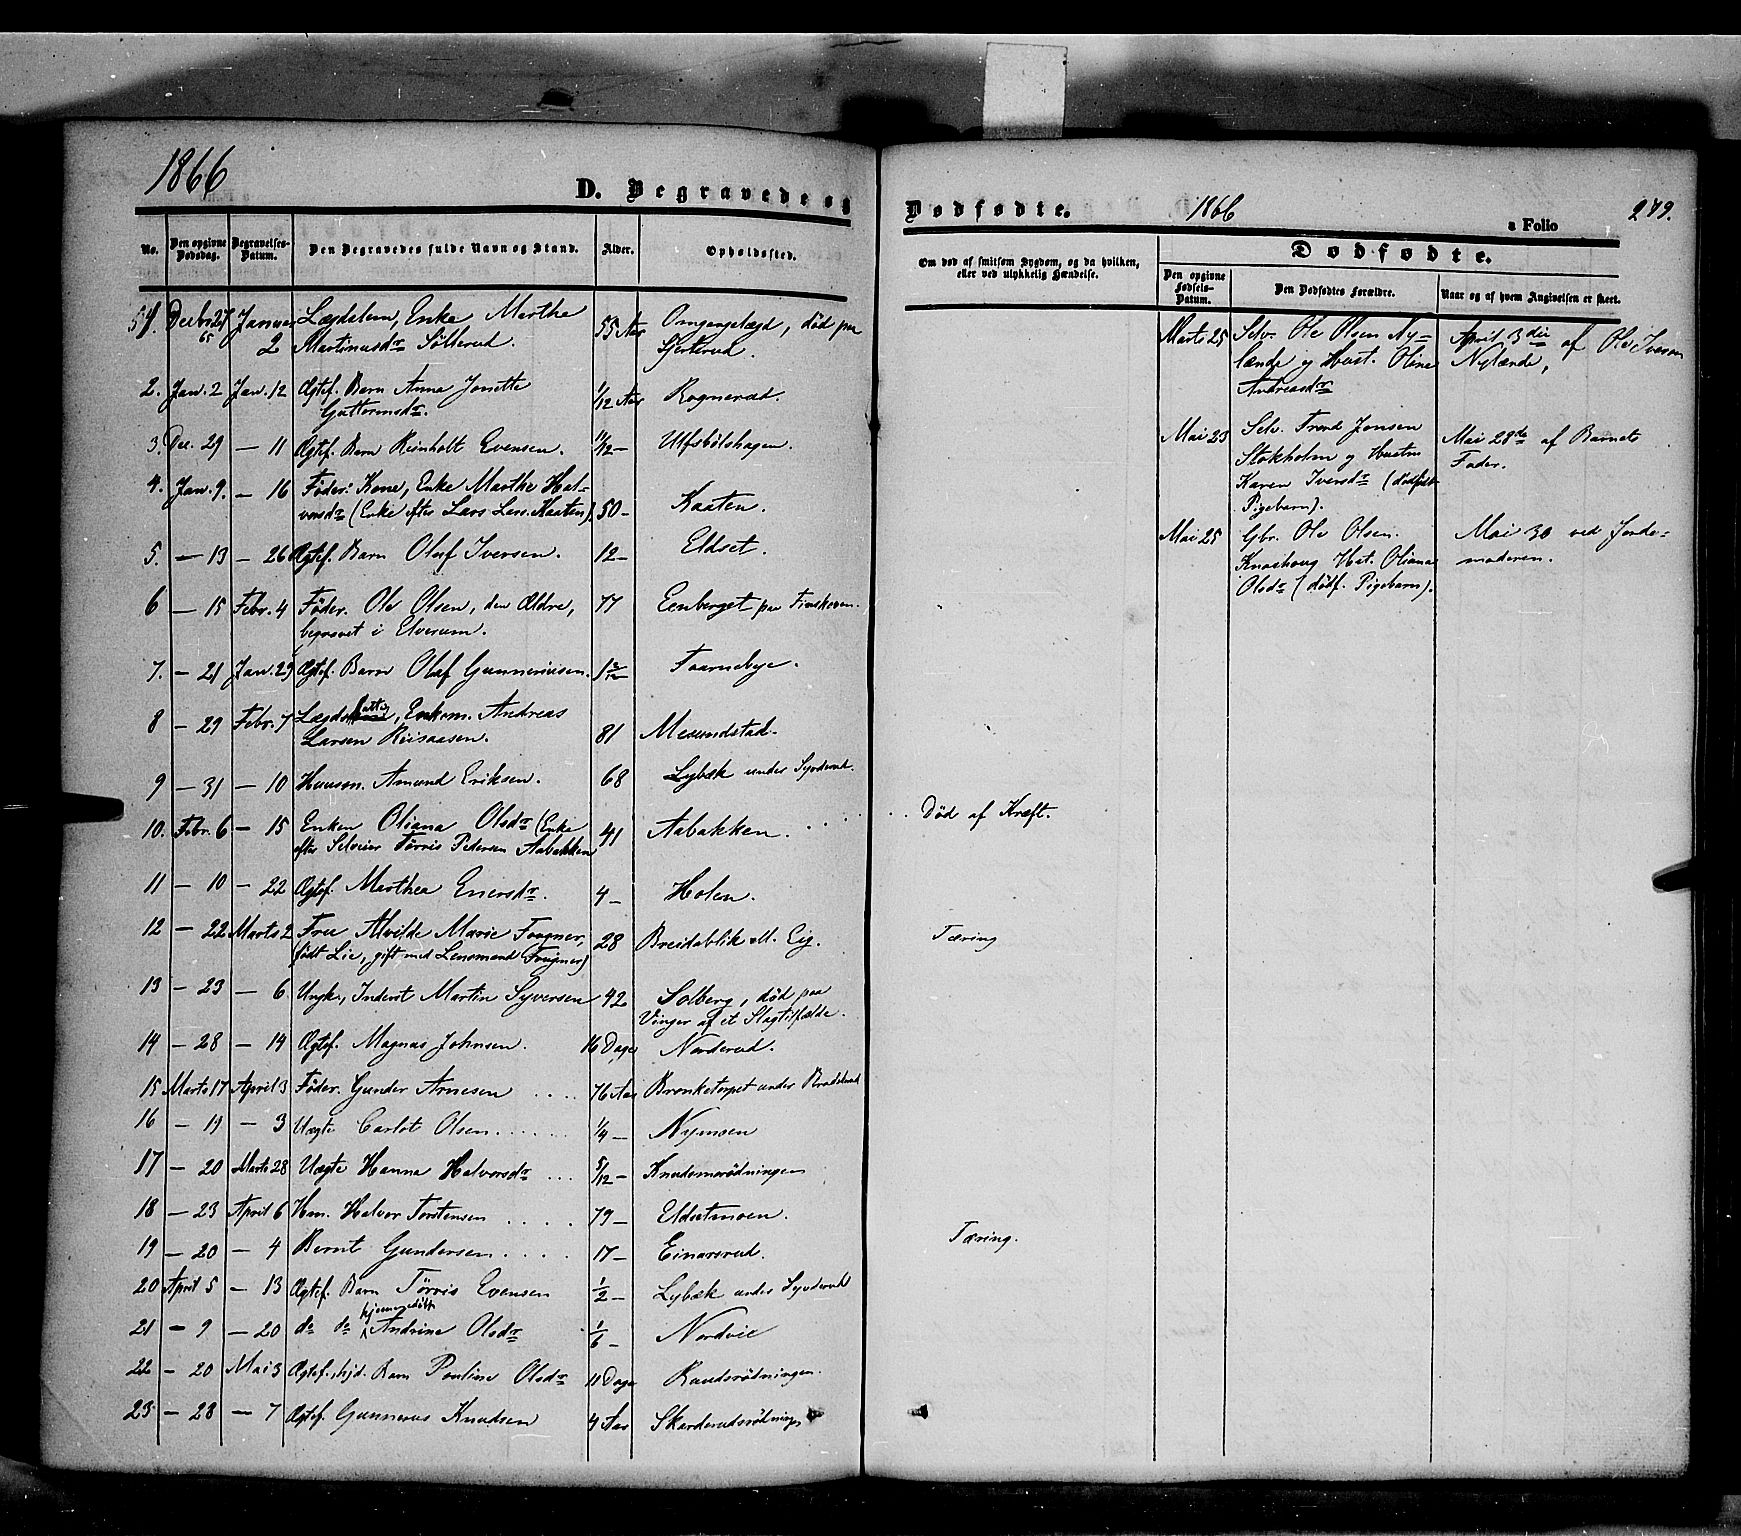 1866
D. Begravede og
No. Den opgivne Dødsdag. Begravelses-Datum. Den Begravedes fulde Navn og Stand. Alder. Opholdssted.
Decbr 27 65 Januar 2 Lægdslem, Enke Marthe 55 Aar Omgangslægd, død paa
Martinusdr Sötterud.
2. Jan. 2 Jan. 12 Ægtef. Barn Anna Jonette 1/12 Aar Rognerud.
Guttormsdr.
3. Dec. 29 — 11 Ægtef. Barn Reinholt Evensen. 11/12 — Ulfsbölshagen.
4. Jan. 9. — 16 Föder. Kone, Enke Marthe Hal-
vorsdr (Enke efter Lars Lars. Kaaten). 50 — Kaaten.
5. — 13 — 26 Ægtef. Barn Olaf Iversen. 12 — Eldset.
6 — 15 Febr. 4 Föder. Ole Olsen, den Ældre, 77 Eenberget paa Finskoven.
begravet i Elverum.
7. — 21 Jan. 29 Ægtef. Barn Olaf Gunneriusen. Taarnebye.
8 — 29 Febr. 7 Lægdsfattig, Enkem. Andreas
Larsen Riisaasen. 81 Mesundstad.
9 — 31 — 10 Huusm. Amund Eriksen. 68 Lybæk under Syverud.
10. Febr. 6 — 15 Enken Oliana Olsdr (Enke 41 Aabakken.
efter Selveier Törris Pedersen Aabakken
11 — 10 — 22 Ægtef. Marthea Enersdr. 4 — Holen.
12 — 22 Marts 2 Fru Alvilde Marie Fougner, 28 Breidablik M. Eig.
født Lie, gift med Lensmand Fougner)
13 — 23 — 6 Ungk., Inderst Martin Syversen 42 Solberg, död paa
Vinger af et Slagtilfælde.
14 — 28 — 14 Ægtef. Magnus Johnsen. 16 Dage Norderud.
15 Marts 17 April 3 Föder. Gunder Arnesen .... 76 Aar Bronketorpet under
16 — 19 — 3 Uægte Carlot Olsen ...... 1/4 — Nymoen
17 — 20 Marts 28 Uægte Hanna Halvorsdr ... 5/12 — Knudsmorödningen
18 — 23 April 6 Hm. Halvor Torstensen .... 79 — Eldsetmoen.
19 — 20 — 4 Bernt Gundersen .... 17 — Einarsrud.
20 April 5 — 13 Ægtef. Barn Törris Evensen 1/2 — Lybæk under Syverud
21 — 9 — 20 do do hjemmedöbt Andrine Olsdr 1/6 — Nordvie
22 — 20 Mai 3 Ægtef., hjd. Barn Pauline Olsdr 11 Dage Raudsrödningen.
23 — 28 — 7 Ægtef. Gunnerus Knudsen 4 Aar Skarderudsrödningen
Dødfødte. 1866 a Folio 279.
Om død af smitsom Sygdom, og da hvilken, eller ved ulykkelig Hændelse.
Dødfødte.
Den opgivne Fødsels-Datum. Den Dødfødtes Forældre. Naar og af hvem Angivelsen er skeet.
Marts 25 Selv. Ole Olsen Ny- April 3die af Ole Iversen
lænde og Hust. Oline Nylænde,
Andreasdr
Mai 23 Selv. Trond Jonsen Mai 28de af Barnets
Stokholm og Hustru Fader.
Karen Iversdr (dødfødt
Pigebarn).
Mai 25 Gbr. Ole Olsen Mai 30 ved Jorde-
Knashoug Hst. Oliana moderen.
Olsdr (dødf. Pigebarn).
Död af Kræft.
Tæring
Tæring.